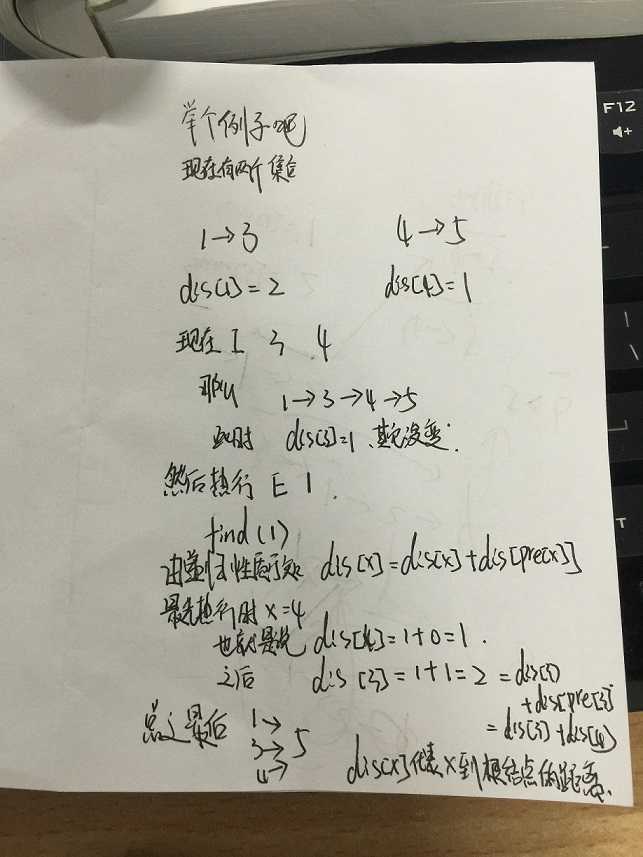 举个例子吧
现在有两个集合
1→3 4→5
dis[1]=2 dis[4]=1
现在 I 3 4
那么 1→3→4→5
此时 dis[3]=1 其它没变.
然后执行 E 1.
find(1)
由递归性质可知 dis[x]=dis[x]+dis[pre[x]]
最先执行时 x=4
也就是说 dis[4]=1+0=1.
之后 dis[3]=1+1=2 =dis[3]
+dis[pre[3]]
=dis[3]+dis[4]
总之最后 1→
3→ 5
4→
dis[x]代表x到根结点的距离.
F12
T